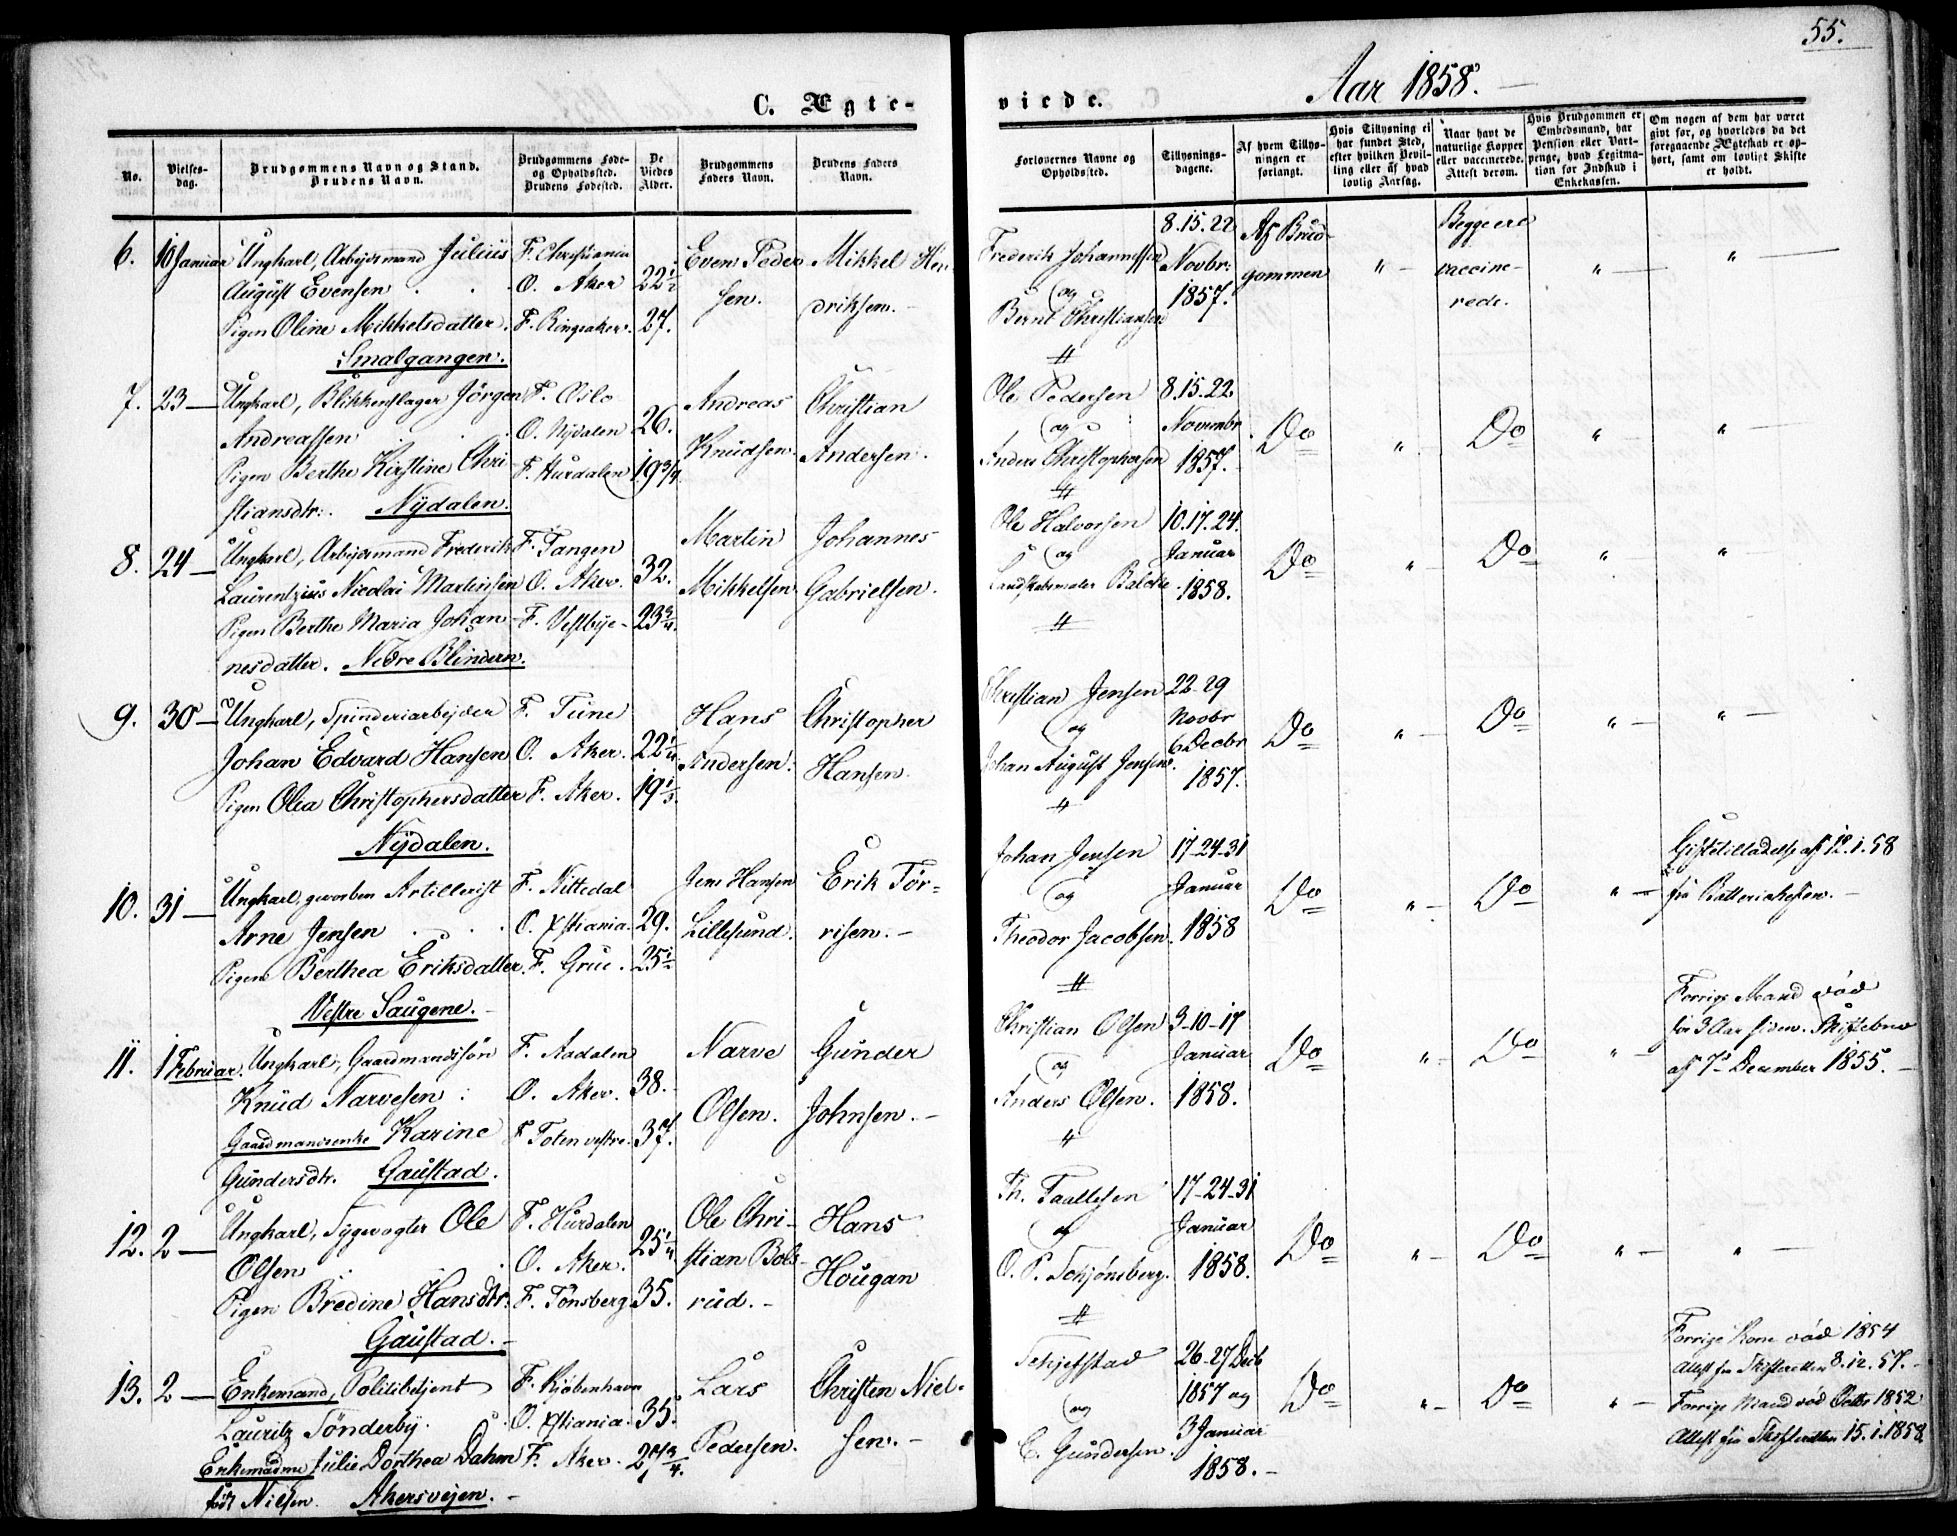 55.
C. Ægte-
viede.
Aar 1858.
No.
Vielses-
dag.
Brudgommens Navn og Stand.
Brudens Navn.
Brudgommens Føde-
og Opholdssted.
Brudens Fødested.
De
Viedes
Alder.
Brudgommens
Faders Navn.
Brudens Faders
Navn.
Forlovernes Navne og
Opholdssted.
Tillysnings-
dagene.
Af hvem Tillys-
ningen er
forlangt.
Hvis Tillysning ei
har fundet Sted,
efter hvilken Bevil-
ling eller af hvad
lovlig Aarsag.
Naar havt de
naturlige Kopper
eller vaccinerede.
Attest derom.
Hvis Brudgommen er
Embedsmand, har
Pension eller Vart-
penge, hvad Legitima-
tion for Indskud i
Enkekassen.
Om nogen af dem har været
gift før, og hvorledes da det
foregaaende Ægteskab er op-
hørt, samt om lovligt Skifte
er holdt.
6. 10 Januar Ungkarl, Arbejdsmand Julius
August Evensen
Pigen Oline Mikkelsdatter.
Smalgangen.
F. Christiania
O. Aker
F. Ringsaker.
22 1/2
27.
Even Peder-
sen.
Mikkel Hen-
driksen.
Frederik Johannessen
og
Bernt Christiansen
8. 15. 22
Novbr:
1857.
Af Brud-
gommen
"
Begge ere
vaccine-
rede.
"
"
7. 23 — Ungkarl, Blikkenslager Jörgen
Andreassen
Pigen Berthe Kirstine Chri-
stiansdtr: Nÿdalen.
F. Oslo
O. Nÿdalen
F. Hurdalen
26.
19 3/4
Andreas
Knudsen.
Christian
Andersen.
Ole Pedersen
og
Anders Christophersen
8. 15. 22
Novembr
1857.
Do
"
Do
"
"
8. 24 — Ungkarl, Arbejdsmand Frederik
Laurentzius Nicolai Martinsen
Pigen Berthe Maria Johan-
nesdatter. Nedre Blindern.
F. Tangen
O. Aker.
F. Vestbye
32.
23 3/4.
Martin
Mikkelsen.
Johannes
Gabrielsen.
Ole Halvorsen
og
Landskabsmaler Balcke
10. 17. 24.
Januar
1858.
Do
"
Do
"
"
9. 30 — Ungkarl, Spinderiarbejder
Johan Edvard Hansen
Pigen Olea Christophersdatter
Nÿdalen.
F. Tune
O. Aker.
F. Aker.
22 1/4
19 1/3.
Hans
Andersen.
Christopher
Hansen.
Christian Jensen
og
Johan August Jensen.
22-29
Novbr
6 Decbr
1857.
Do
"
Do
"
"
10. 31 — Ungkarl, gworben Artillerist
Arne Jensen
Pigen Berthea Eriksdatter.
Vestre Saugene.
F. Nittedal
O. Xstiania.
F. Grue.
29.
25 1/2
Jens Hansen
Lillesund.
Erik Tör-
risen.
Johan Jensen
og
Theodor Jacobsen.
17-24-31
Januar
1858
Do
"
Do
"
Giftetilladelse af 12. 1. 58
fra Batteriechefen.
11. 1 Februar. Ungkarl, Gaardmandssön
Knud Narvesen
Gaardmandsenke Karine
Gundersdtr. Gaustad.
F. Aadalen
O. Aker.
F Toten vestre.
38.
37.
Narve
Olsen.
Gunder
Johnsen.
Christian Olsen
og
Anders Olsen.
3-10-17
Januar
1858.
Do
"
Do
"
Forrige Mand död
for 3 Aar siden. Skiftebrev
af 7de December 1855.
12. 2 — Ungkarl, Sygevogter Ole
Olsen
Pigen Bredine Hansdtr.
Gaustad.
F. Hurdalen
O. Aker.
F. Tönsberg
25 1/4
35.
Ole Chri-
stian Bols-
rud.
Hans
Hougan
Th. Taallesen
og
O. P. Schjönsberg.
17-24-31
Januar
1858.
Do
"
Do
"
"
13. 2 — Enkemand, Politibetjent
Lauritz Sönderby.
Enkemadme Julie Dorthea Dahm
födt Nielsen. Akersvejen.
F. Kjöbenhavn
O. Xstiania.
F. Aker.
35.
27 3/4.
Lars
Pedersen.
Christen Niel-
sen.
Schjetstad
og
C. Gundersen.
26-27 Decb
1857 og
3 Januar
1858.
Do
"
Do
"
Forrige Kone död 1854
Attest fra Skifteretten 8. 12. 57.
Forrige Mand död Octbr 1852
Attest fra Skifteretten 15. 1. 1858.